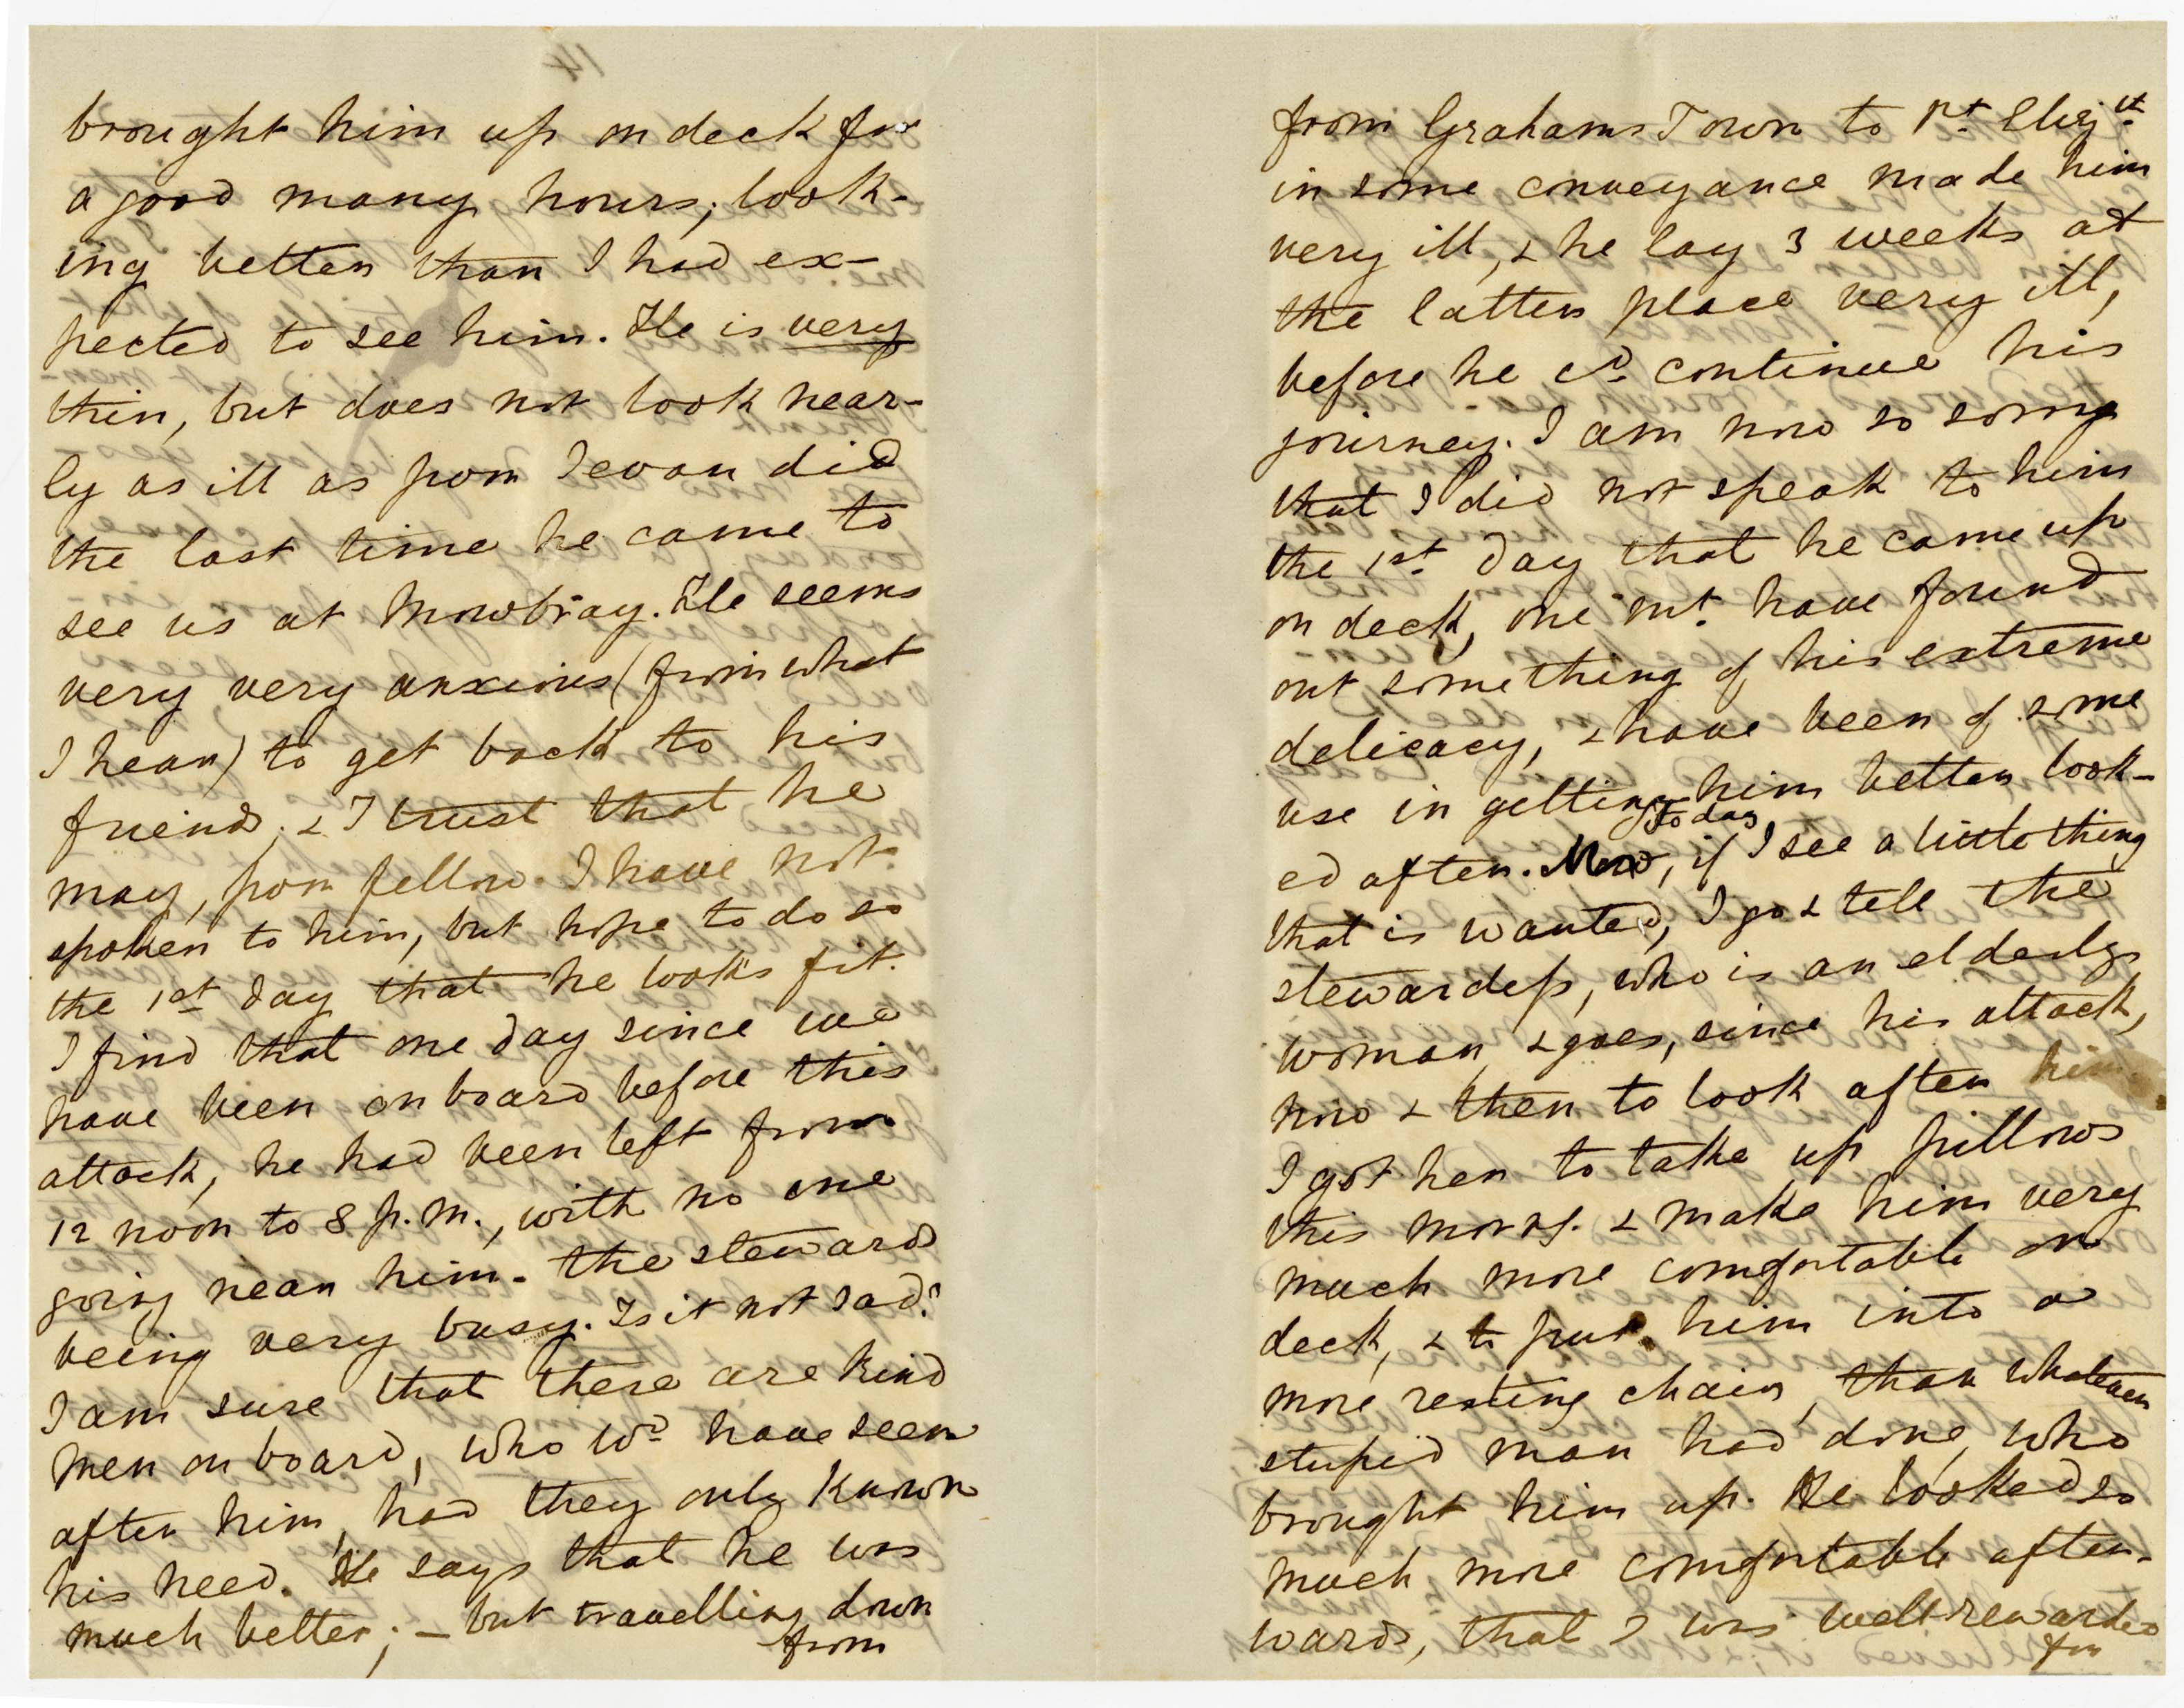 brought him up on deck for
a good many hours; look-
ing better than I had ex-
pected to see him. He is very
thin, but does not look near-
ly as ill as poor Jevon did
the last time he came to
see us at Mowbray. He seems
very very anxious (from what
I hear) to get back to his
friends. & I trust that he
may, poor fellow. I have not
spoken to him, but hope to do so
the 1st day that he looks fit.
I find that one day since we
have been on board before this
attack, he had been left from
12 noon to 8 p.m., with no one
going near him. the steward
being very busy. Is it not sad?
I am sure that there are kind
men on board, who wd. have seen
after him, had they only known
his need. He says that he was
much better; – but travelling down
from
from Grahams Town to Pt. Elizth.
in some conveyance made him
very ill, & he lay 3 weeks at
the latter place very ill,
before he cd. continue his
journey. I am now so sorry
that I did not speak to him
the 1st. day that he came up
on deck, one mt. have found
out something of his extreme
delicacy, & have been of some
use in getting him better look-
Today
ed after. Now, if I see a little thing
that is wanted, I go & tell the
stewardess, who is an elderly
woman, & goes, since his attack,
now & then to look after him.
I got her to take up pillows
this morng. & make him very
much more comfortable on
deck, & to put him into a
more resting chair, than whatever
stupid man had done, who
brought him up. He looked so
much more comfortable after-
wards, that I was well rewarded
for